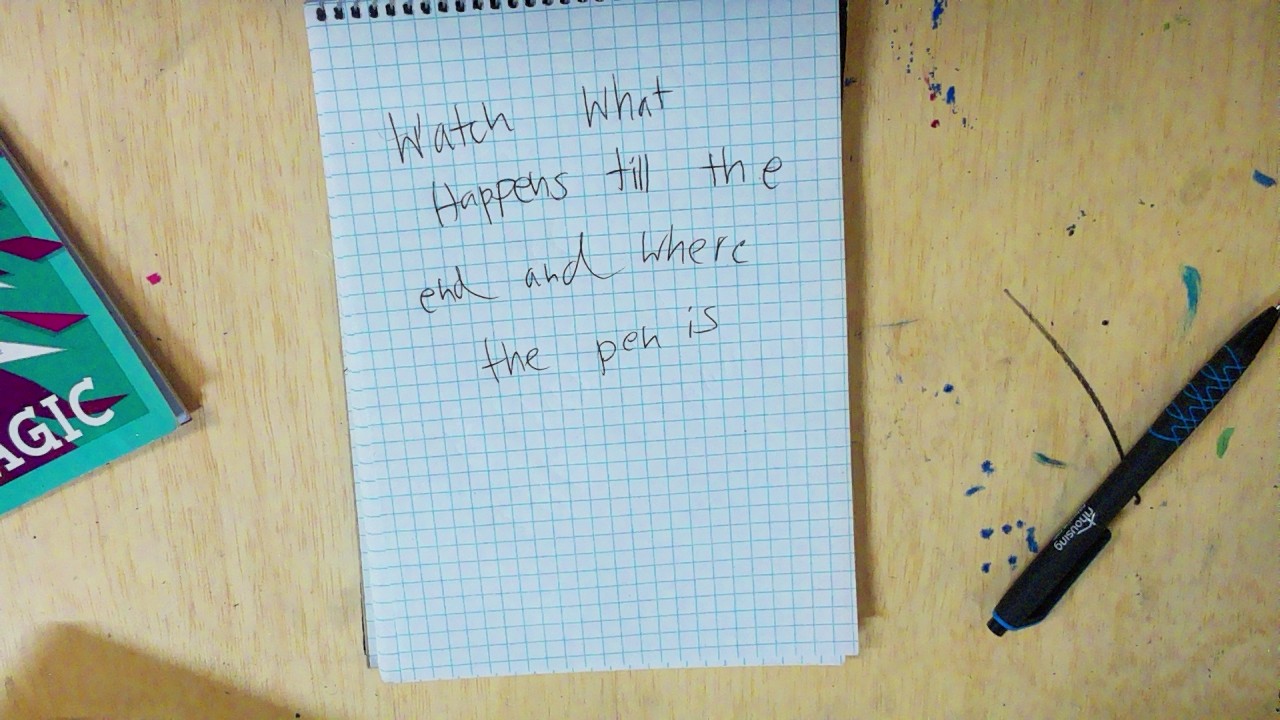 Watch What
Happens till the
end and where
the pen is
AGIC
housing